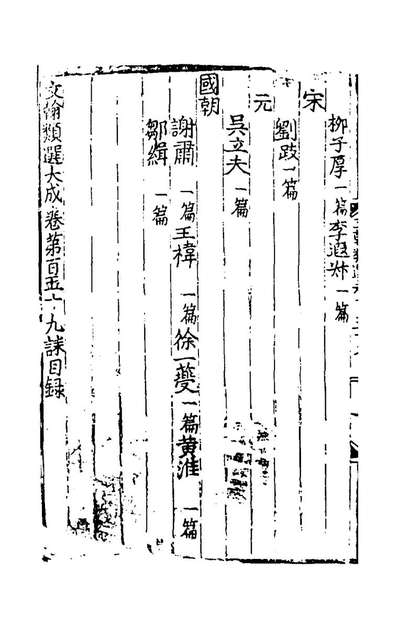 柳子厚一篇李遐叔一篇
宋
劉跂一篇
元
吳立夫一篇
國朝
謝肅一篇王褘一篇徐一夔一篇黃淮一篇
鄒緝一篇
文翰類選大成卷第百五十九誄目録